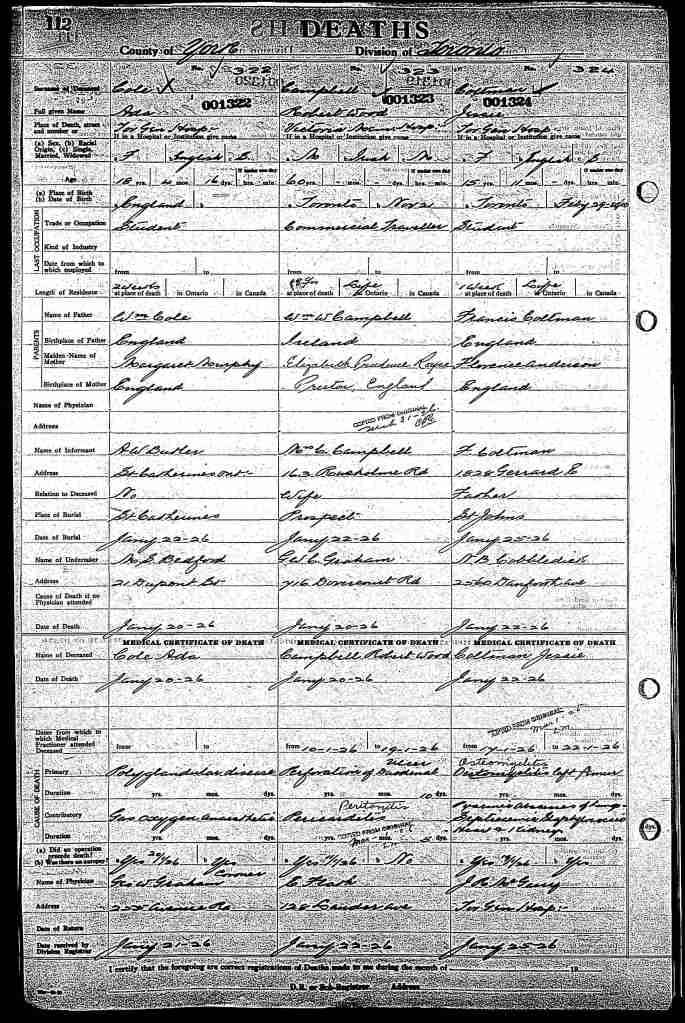 112
DEATHS
County of York Division of Toronto
No. 322 No. 323 No. 324
Surname of Deceased Cole X Campbell X Coltman X
001322 001323 001324
Full given Name Ada Robert Wood Jessie
Place of Death, street and number or Tor Gen Hosp. Hosp. Tor Gen Hosp
If in a Hospital or Institution give name If in a Hospital or Institution give name If in a Hospital or Institution give name
(a) Sex, (b) Racial Origin, (c) Single, Married, Widowed F English S. M Irish M. F English S
If under one day If under one day If under one day
Age 18 yrs. mos. 16 days hrs. min. 60 yrs. - mos. - days hrs. min. 15 yrs. 11 mos. - days hrs. min.
(a) Place of Birth (b) Date of Birth England Toronto Nov 2 Toronto Feby
LAST OCCUPATION
Trade or Occupation Student Commercial Traveller Student
Kind of Industry
Date from which to which employed from to from to from to
Length of Residence 2 weeks at place of death in Ontario in Canada at place of death Life in Ontario in Canada 1 week at place of death Life in Ontario in Canada
PARENTS
Name of Father Wm Cole Wm W Campbell Francis Coltman
Birthplace of Father England Ireland England
Maiden Name of Mother Margaret Murphy Elizabeth Florence Anderson
Birthplace of Mother England Preston, England England
Name of Physician
COPIED FROM ORIGINAL
Address
Name of Informant A W Butler Mrs C. Campbell F. Coltman
Address St Catherines Ont 163 Rusholme Rd 1828 Gerrard E
Relation to Deceased No Wife Father
Place of Burial St Catherines Prospect St Johns
Date of Burial Jany 22-26 Jany 22-26 Jany 25-26
Name of Undertaker M. S Bedford G W C Graham N. B. Cobbledick
Address 21 Dupont St 716 Dovercourt Rd 2560 Danforth Ave
Cause of Death if no Physician attended
Date of Death Jany 20-26 Jany 20-26 Jany 22-26
MEDICAL CERTIFICATE OF DEATH MEDICAL CERTIFICATE OF DEATH MEDICAL CERTIFICATE OF DEATH
Name of Deceased Cole Ada Campbell Robert Wood Coltman Jessie
Date of Death Jany 20-26 Jany 20-26 Jany 22-26
COPIED FROM ORIGINAL
Dates from which to which Medical Practitioner attended Deceased from to from 10-1-26 to 19-1-26 from 17-1-26 to 22-1-26
CAUSE OF DEATH
Ulcer Osteomyelitis
Primary Polyglandular disease Perforation of Duodenal left femur
Duration yrs. mos. dys. yrs. mos. 10 dys. yrs. mos. dys.
Peritonitis
Contributory Gas oxygen anaesthetic Pericarditis Septicaemia
COPIED FROM ORIGINAL Heart & Kidney
Duration yrs. mos. dys. yrs. mos. 5 dys. yrs. mos. dys.
(a) Did an operation precede death? (b) Was there an autopsy? Yes Yes Yes No Yes Yes
Coroner
Name of Physician Geo W Graham J. R.
Address Avenue Rd 128 Lauder Ave Tor Gen Hosp.
Date of Return
Date received by Division Registrar Jany 21-26 Jany 22-26 Jany 25-26
I certify that the foregoing are correct registrations of Deaths made to me during the month of 19
D.R. or Sub-Registrar Address